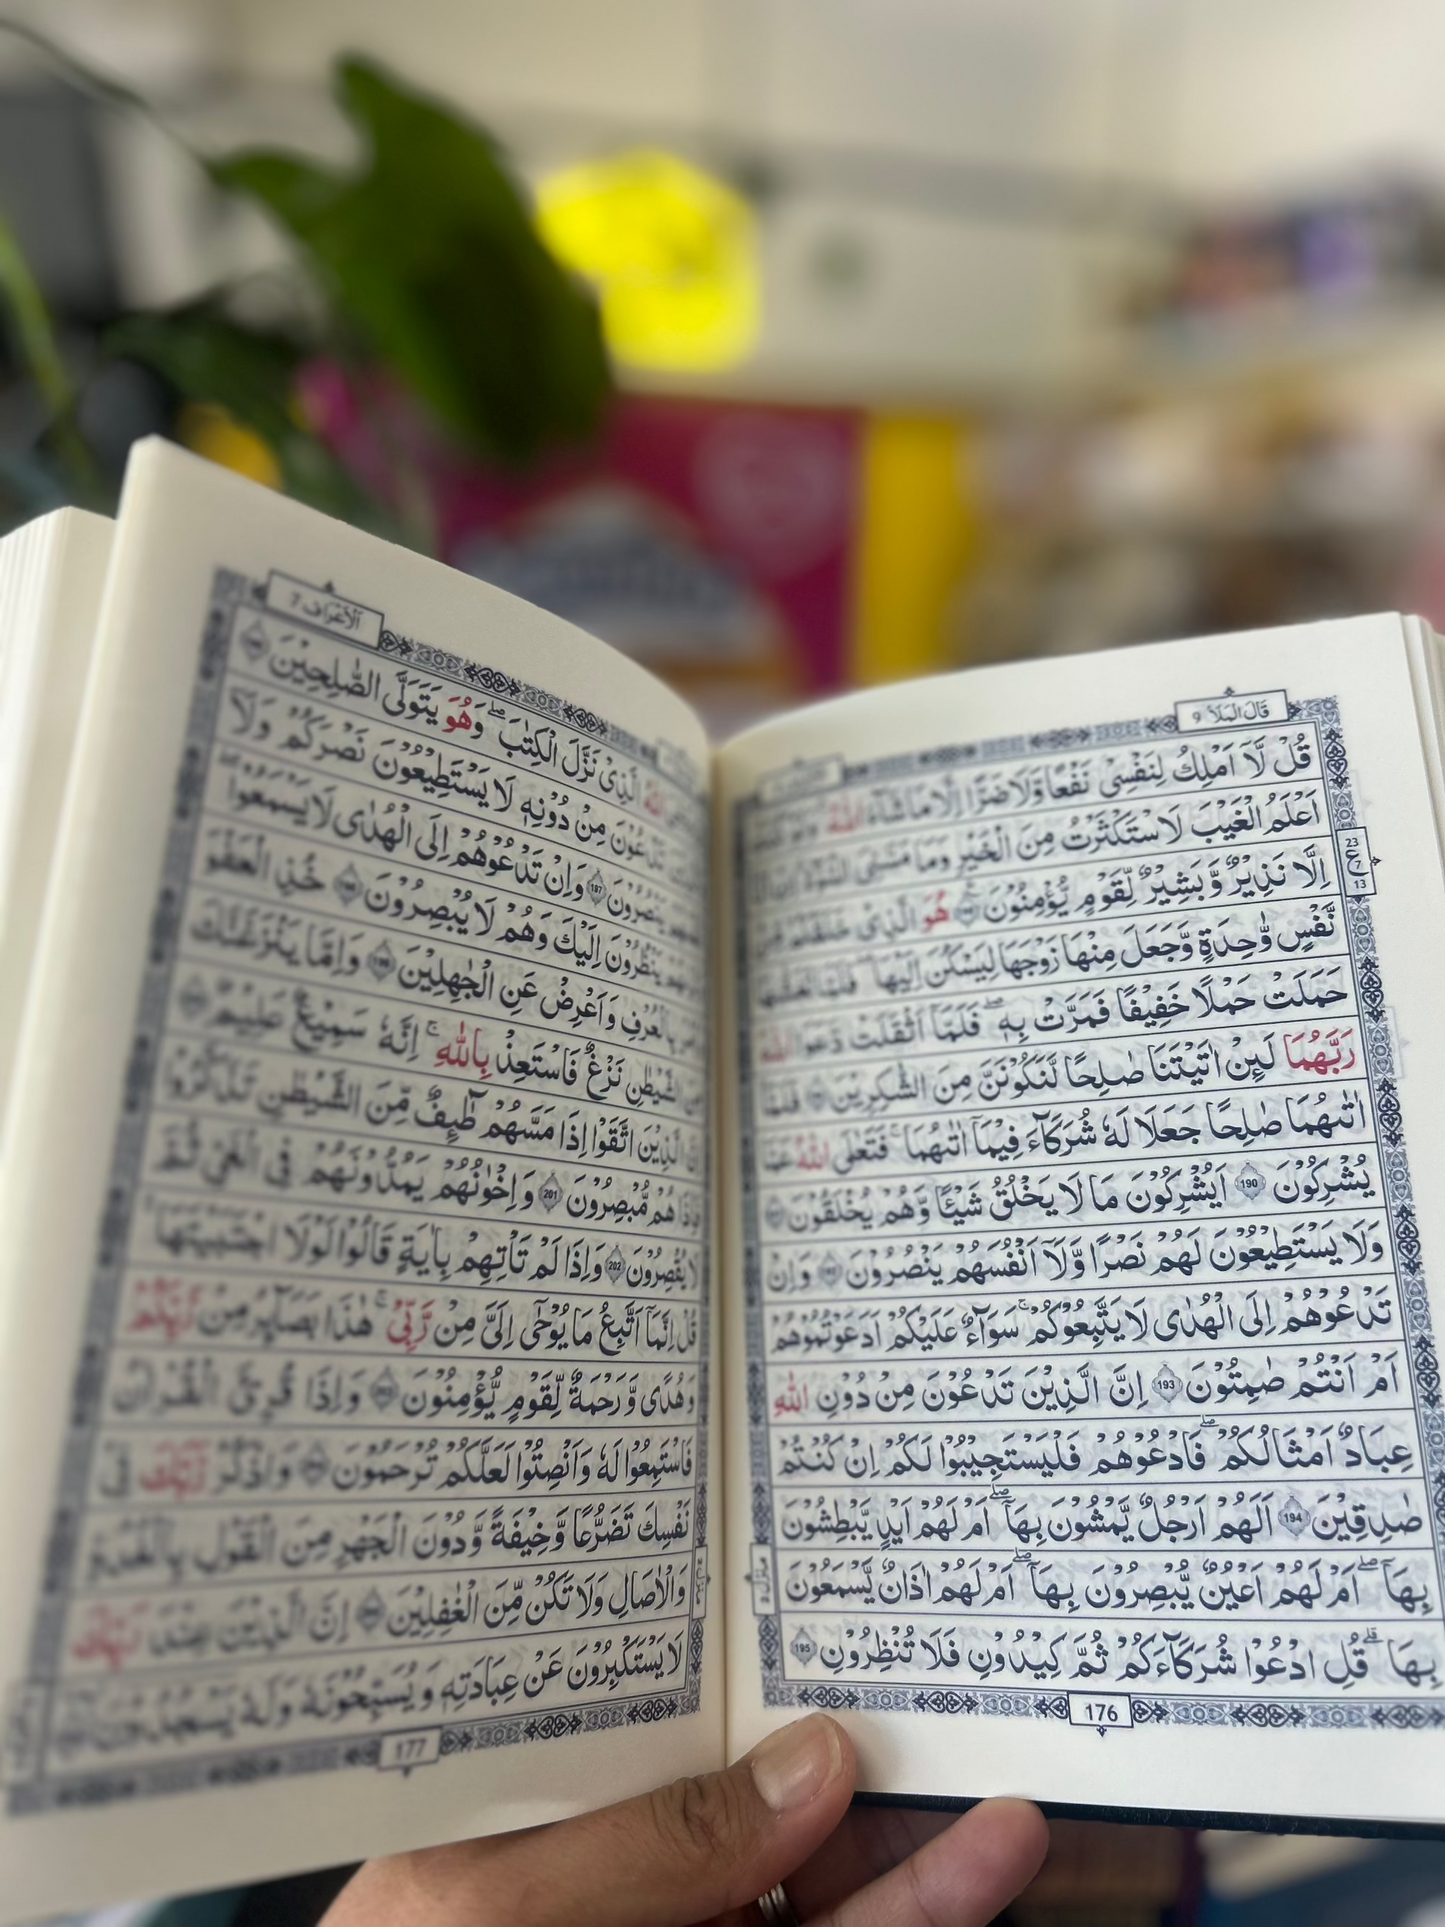 قَالَ الْمَلَاُ ٩
قُلْ لَّآ اَمْلِكُ لِنَفْسِیْ نَفْعًا وَّلَا ضَرًّا اِلَّا مَا شَآءَ اللّٰهُ
اَعْلَمُ الْغَیْبَ لَاسْتَكْثَرْتُ مِنَ الْخَیْرِ وَمَا مَسَّنِیَ السُّوْٓءُ
اِلَّا نَذِیْرٌ وَّبَشِیْرٌ لِّقَوْمٍ یُّؤْمِنُوْنَ هُوَ الَّذِیْ خَلَقَكُمْ
23
ع
7
13
نَّفْسٍ وَّاحِدَةٍ وَّجَعَلَ مِنْهَا زَوْجَهَا لِیَسْكُنَ اِلَیْهَا ۚ فَلَمَّا تَغَشّٰىهَا
حَمَلَتْ حَمْلًا خَفِیْفًا فَمَرَّتْ بِهٖ ۚ فَلَمَّآ اَثْقَلَتْ دَّعَوَا اللّٰهَ
رَبَّهُمَا لَىِٕنْ اٰتَیْتَنَا صَالِحًا لَّنَكُوْنَنَّ مِنَ الشّٰكِرِیْنَ فَلَمَّآ
اٰتٰىهُمَا صَالِحًا جَعَلَا لَهٗ شُرَكَآءَ فِیْمَآ اٰتٰىهُمَا ۚ فَتَعٰلَی اللّٰهُ عَمَّا
یُشْرِكُوْنَ 190 اَیُشْرِكُوْنَ مَا لَا یَخْلُقُ شَیْـًٔا وَّهُمْ یُخْلَقُوْنَ
وَلَا یَسْتَطِیْعُوْنَ لَهُمْ نَصْرًا وَّلَآ اَنْفُسَهُمْ یَنْصُرُوْنَ وَاِنْ
تَدْعُوْهُمْ اِلَی الْهُدٰی لَا یَتَّبِعُوْكُمْ ۚ سَوَآءٌ عَلَیْكُمْ اَدَعَوْتُمُوْهُمْ
اَمْ اَنْتُمْ صَامِتُوْنَ 193 اِنَّ الَّذِیْنَ تَدْعُوْنَ مِنْ دُوْنِ اللّٰهِ
عِبَادٌ اَمْثَالُكُمْ ۖ فَادْعُوْهُمْ فَلْیَسْتَجِیْبُوْا لَكُمْ اِنْ كُنْتُمْ
صٰدِقِیْنَ 194 اَلَهُمْ اَرْجُلٌ یَّمْشُوْنَ بِهَآ ۖ اَمْ لَهُمْ اَیْدٍ یَّبْطِشُوْنَ
بِهَآ ۖ اَمْ لَهُمْ اَعْیُنٌ یُّبْصِرُوْنَ بِهَآ ۖ اَمْ لَهُمْ اٰذَانٌ یَّسْمَعُوْنَ
بِهَا ۗ قُلِ ادْعُوْا شُرَكَآءَكُمْ ثُمَّ كِیْدُوْنِ فَلَا تُنْظِرُوْنِ 195
176
اَلْاَعْرَاف 7
اللّٰهُ الَّذِیْ نَزَّلَ الْكِتٰبَ ۖ وَهُوَ یَتَوَلَّی الصّٰلِحِیْنَ
تَدْعُوْنَ مِنْ دُوْنِهٖ لَا یَسْتَطِیْعُوْنَ نَصْرَكُمْ وَلَآ
یَنْصُرُوْنَ 197 وَاِنْ تَدْعُوْهُمْ اِلَی الْهُدٰی لَا یَسْمَعُوْا
یَنْظُرُوْنَ اِلَیْكَ وَهُمْ لَا یُبْصِرُوْنَ خُذِ الْعَفْوَ
بِالْعُرْفِ وَاَعْرِضْ عَنِ الْجٰهِلِیْنَ وَاِمَّا یَنْزَغَنَّكَ
الشَّیْطٰنِ نَزْغٌ فَاسْتَعِذْ بِاللّٰهِ ۚ اِنَّهٗ سَمِیْعٌ عَلِیْمٌ
اِنَّ الَّذِیْنَ اتَّقَوْا اِذَا مَسَّهُمْ طٰٓىِٕفٌ مِّنَ الشَّیْطٰنِ تَذَكَّرُوْا
فَاِذَا هُمْ مُّبْصِرُوْنَ 201 وَاِخْوَانُهُمْ یَمُدُّوْنَهُمْ فِی الْغَیِّ ثُمَّ
لَا یُقْصِرُوْنَ 202 وَاِذَا لَمْ تَاْتِهِمْ بِاٰیَةٍ قَالُوْا لَوْلَا اجْتَبَیْتَهَا
قُلْ اِنَّمَآ اَتَّبِعُ مَا یُوْحٰٓی اِلَیَّ مِنْ رَّبِّیْ ۚ هٰذَا بَصَآىِٕرُ مِنْ رَّبِّكُمْ
وَهُدًی وَّرَحْمَةٌ لِّقَوْمٍ یُّؤْمِنُوْنَ وَاِذَا قُرِئَ الْقُرْاٰنُ
فَاسْتَمِعُوْا لَهٗ وَاَنْصِتُوْا لَعَلَّكُمْ تُرْحَمُوْنَ وَاذْكُرْ رَّبَّكَ فِیْ
نَفْسِكَ تَضَرُّعًا وَّخِیْفَةً وَّدُوْنَ الْجَهْرِ مِنَ الْقَوْلِ بِالْغُدُوِّ
وَالْاٰصَالِ وَلَا تَكُنْ مِّنَ الْغٰفِلِیْنَ اِنَّ الَّذِیْنَ عِنْدَ رَبِّكَ
لَا یَسْتَكْبِرُوْنَ عَنْ عِبَادَتِهٖ وَیُسَبِّحُوْنَهٗ وَلَهٗ یَسْجُدُوْنَ
177